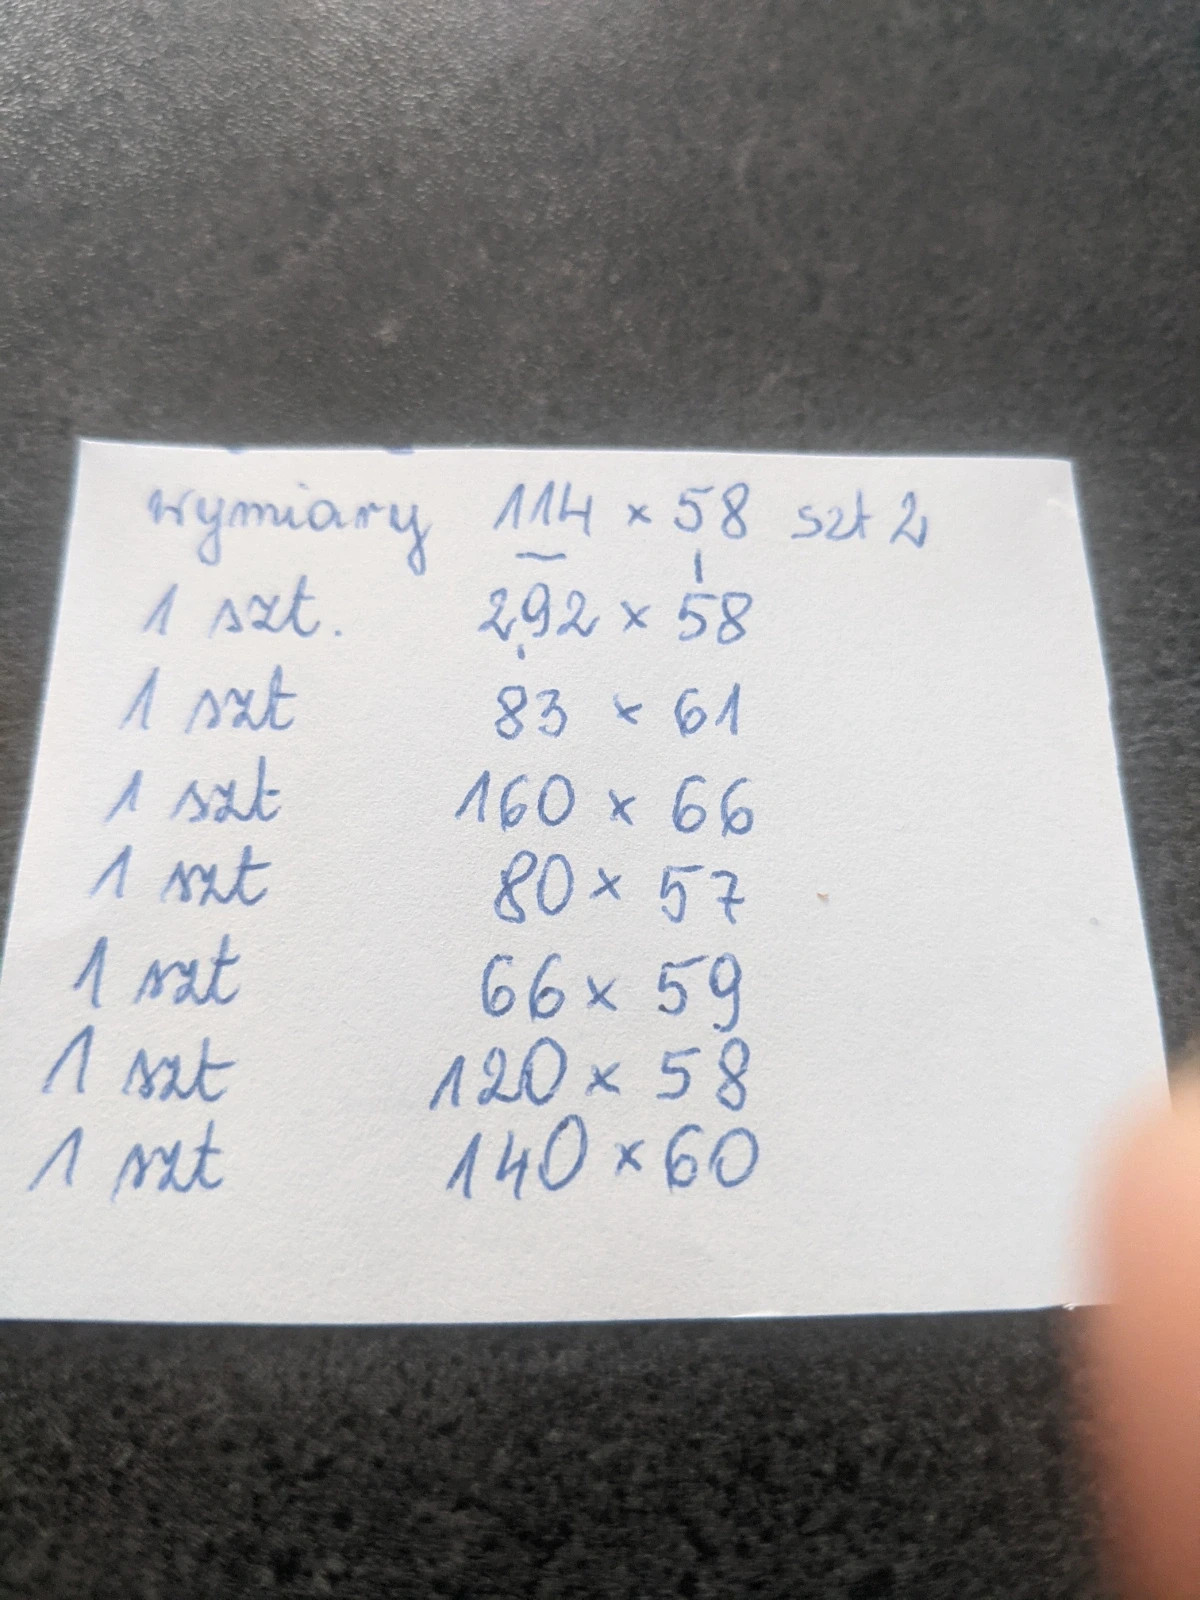 wymiary 114 x 58 szt 2
1 szt. 292 x 58
1 szt 83 x 61
1 szt 160 x 66
1 szt 80 x 57
1 szt 66 x 59
1 szt 120 x 58
1 szt 140 x 60